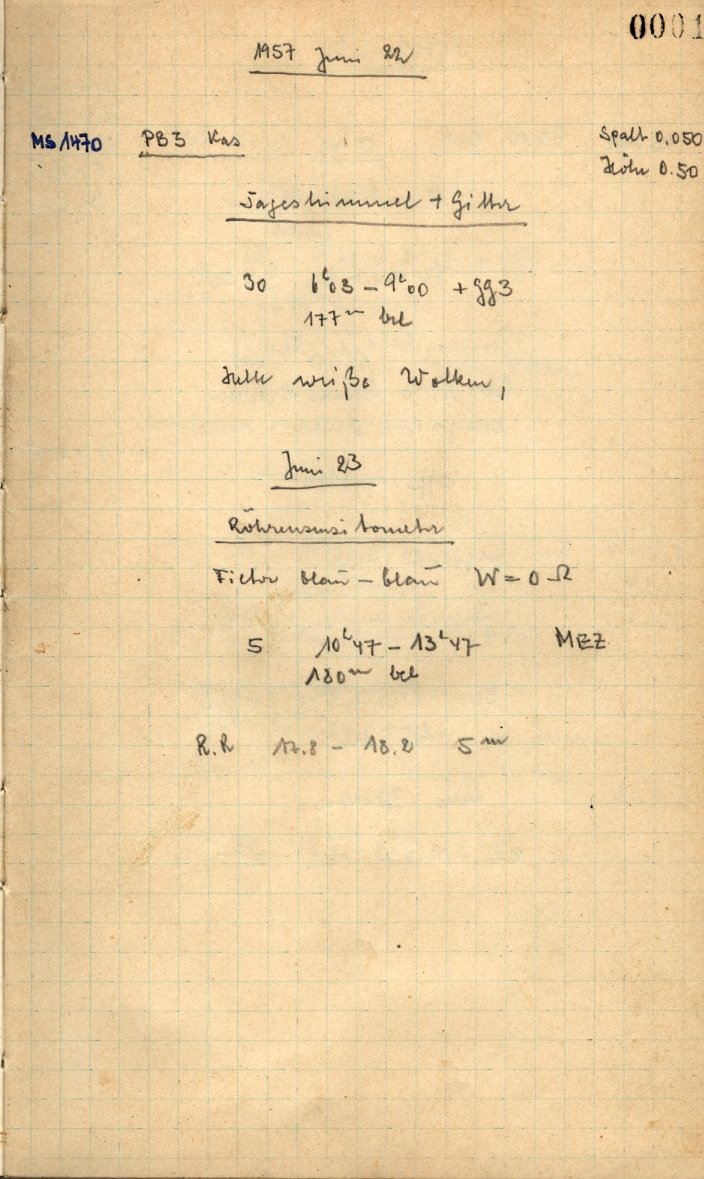 0001
1957 Juni 22
MS 1470 PB3 Kas Spalt 0,050
Höhe 0.50
Tageshimmel + Gitter
30 6ʰ03 – 9ʰ00 + gg3
177ᵐ bel
Helle weiße Wolken,
Juni 23
Röhrensensitometer
Filter blau – blau W = 0 Ω
5 10ʰ47 – 13ʰ47 MEZ
180ᵐ bel
R.R 17.8 – 18.2 5ᵐ